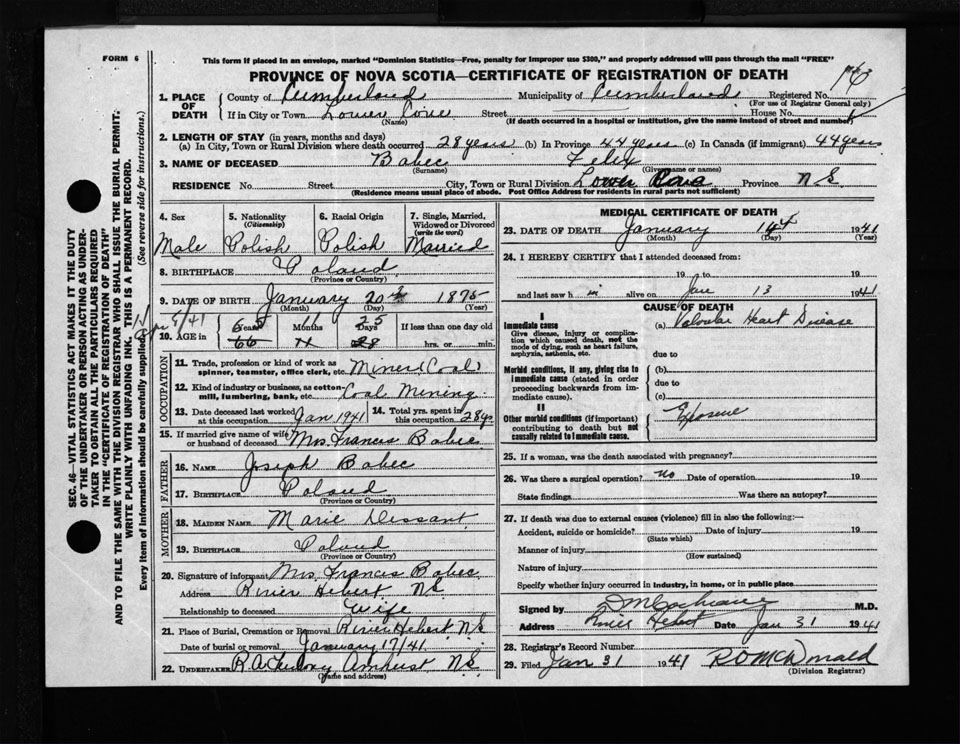 FORM 6
This form if placed in an envelope, marked "Dominion Statistics—Free, penalty for improper use $300," and properly addressed will pass through the mail "FREE"
PROVINCE OF NOVA SCOTIA—CERTIFICATE OF REGISTRATION OF DEATH
1. PLACE OF DEATH County of Cumberland Municipality of Cumberland Registered No.
(For use of Registrar General only)
If in City or Town Lower Cove Street House No.
(Name) (If death occurred in a hospital or institution, give the name instead of street and number)
2. LENGTH OF STAY (in years, months and days)
(a) In City, Town or Rural Division where death occurred 28 years (b) In Province 44 years (c) In Canada (if immigrant) 44 years
3. NAME OF DECEASED Babec Felix
(Surname) (Given name or names)
RESIDENCE No. Street City, Town or Rural Division Lower Cove Province N S
(Residence means usual place of abode. Post Office Address for residents in rural parts not sufficient)
4. Sex Male
5. Nationality (Citizenship) Polish
6. Racial Origin Polish
7. Single, Married, Widowed or Divorced (write the word) Married
8. BIRTHPLACE Poland
(Province or Country)
9. DATE OF BIRTH January 20 1875
(Month) (Day) (Year)
10. AGE in Years Months Days If less than one day old
65 11 25 hrs. or min.
66
OCCUPATION
11. Trade, profession or kind of work as spinner, teamster, office clerk, etc. Miner (Coal)
12. Kind of industry or business, as cotton-mill, lumbering, bank, etc. Coal Mining
13. Date deceased last worked at this occupation Jan 1941
14. Total yrs. spent in this occupation 28 ys
15. If married give name of wife or husband of deceased Mrs. Francis Babec
FATHER
16. NAME Joseph Babec
17. BIRTHPLACE Poland
(Province or Country)
MOTHER
18. MAIDEN NAME Marie Dessant
19. BIRTHPLACE Poland
(Province or Country)
20. Signature of informant Mrs Francis Babec
Address River Hebert NS
Relationship to deceased Wife
21. Place of Burial, Cremation or Removal River Hebert NS
Date of burial or removal January 17/41
22. UNDERTAKER Amherst N.S.
(Name and address)
MEDICAL CERTIFICATE OF DEATH
23. DATE OF DEATH January 14th 1941
(Month) (Day) (Year)
24. I HEREBY CERTIFY that I attended deceased from:
19 to 19
and last saw h im alive on Jan 13 1941
CAUSE OF DEATH
I
Immediate cause
Give disease, injury or complication which caused death, not the mode of dying, such as heart failure, asphyxia, asthenia, etc.
(a) Valvular Heart Disease
due to
Morbid conditions, if any, giving rise to immediate cause (stated in order proceeding backwards from immediate cause).
(b)
due to
(c)
II
Other morbid conditions (if important) contributing to death but not causally related to immediate cause.
25. If a woman, was the death associated with pregnancy?
26. Was there a surgical operation? no Date of operation 19
State findings Was there an autopsy?
27. If death was due to external causes (violence) fill in also the following:—
Accident, suicide or homicide? Date of injury 19
(State which)
Manner of injury
(How sustained)
Nature of injury
Specify whether injury occurred in industry, in home, or in public place
Signed by M Cochrane M.D.
Address River Hebert Date Jan 31 1941
28. Registrar's Record Number
29. Filed Jan 31 1941 R O McDonald
(Division Registrar)
SEC. 46—VITAL STATISTICS ACT MAKES IT THE DUTY
OF THE UNDERTAKER OR PERSON ACTING AS UNDER-
TAKER TO OBTAIN ALL THE PARTICULARS REQUIRED
IN THE "CERTIFICATE OF REGISTRATION OF DEATH"
AND TO FILE THE SAME WITH THE DIVISION REGISTRAR WHO SHALL ISSUE THE BURIAL PERMIT.
WRITE PLAINLY WITH UNFADING INK. THIS IS A PERMANENT RECORD.
Every item of information should be carefully supplied. (See reverse side for instructions.)